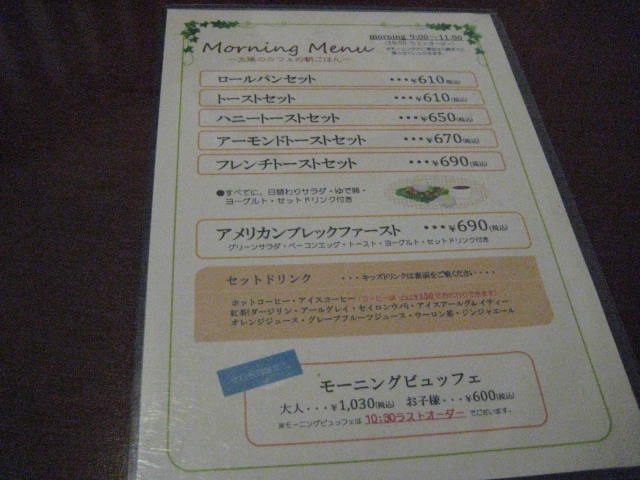 Morning Menu
morning 9:00～11:00
ロールパンセット ・・・¥610(税込)
トーストセット ・・・¥610(税込)
ハニートーストセット ・・・¥650(税込)
アーモンドトーストセット ・・・¥670(税込)
フレンチトーストセット ・・・¥690(税込)
●すべてに、日替わりサラダ・ゆで卵・
ヨーグルト・セットドリンク付き
アメリカンブレックファースト ・・・¥690(税込)
グリーンサラダ・ベーコンエッグ・トースト・ヨーグルト・セットドリンク付き
セットドリンク ・・・キッズドリンクは裏面をご覧ください・・・・
ホットコーヒー・アイスコーヒー(コーヒーは ¥150でおかわりできます)
紅茶(ダージリン・アールグレイ・セイロンウバ)・アイスアールグレイティー
オレンジジュース・グレープフルーツジュース・ウーロン茶・ジンジャエール
モーニングビュッフェ
大人・・・¥1,030(税込) お子様・・・¥600(税込)
※モーニングビュッフェは 10:30ラストオーダー でございます。